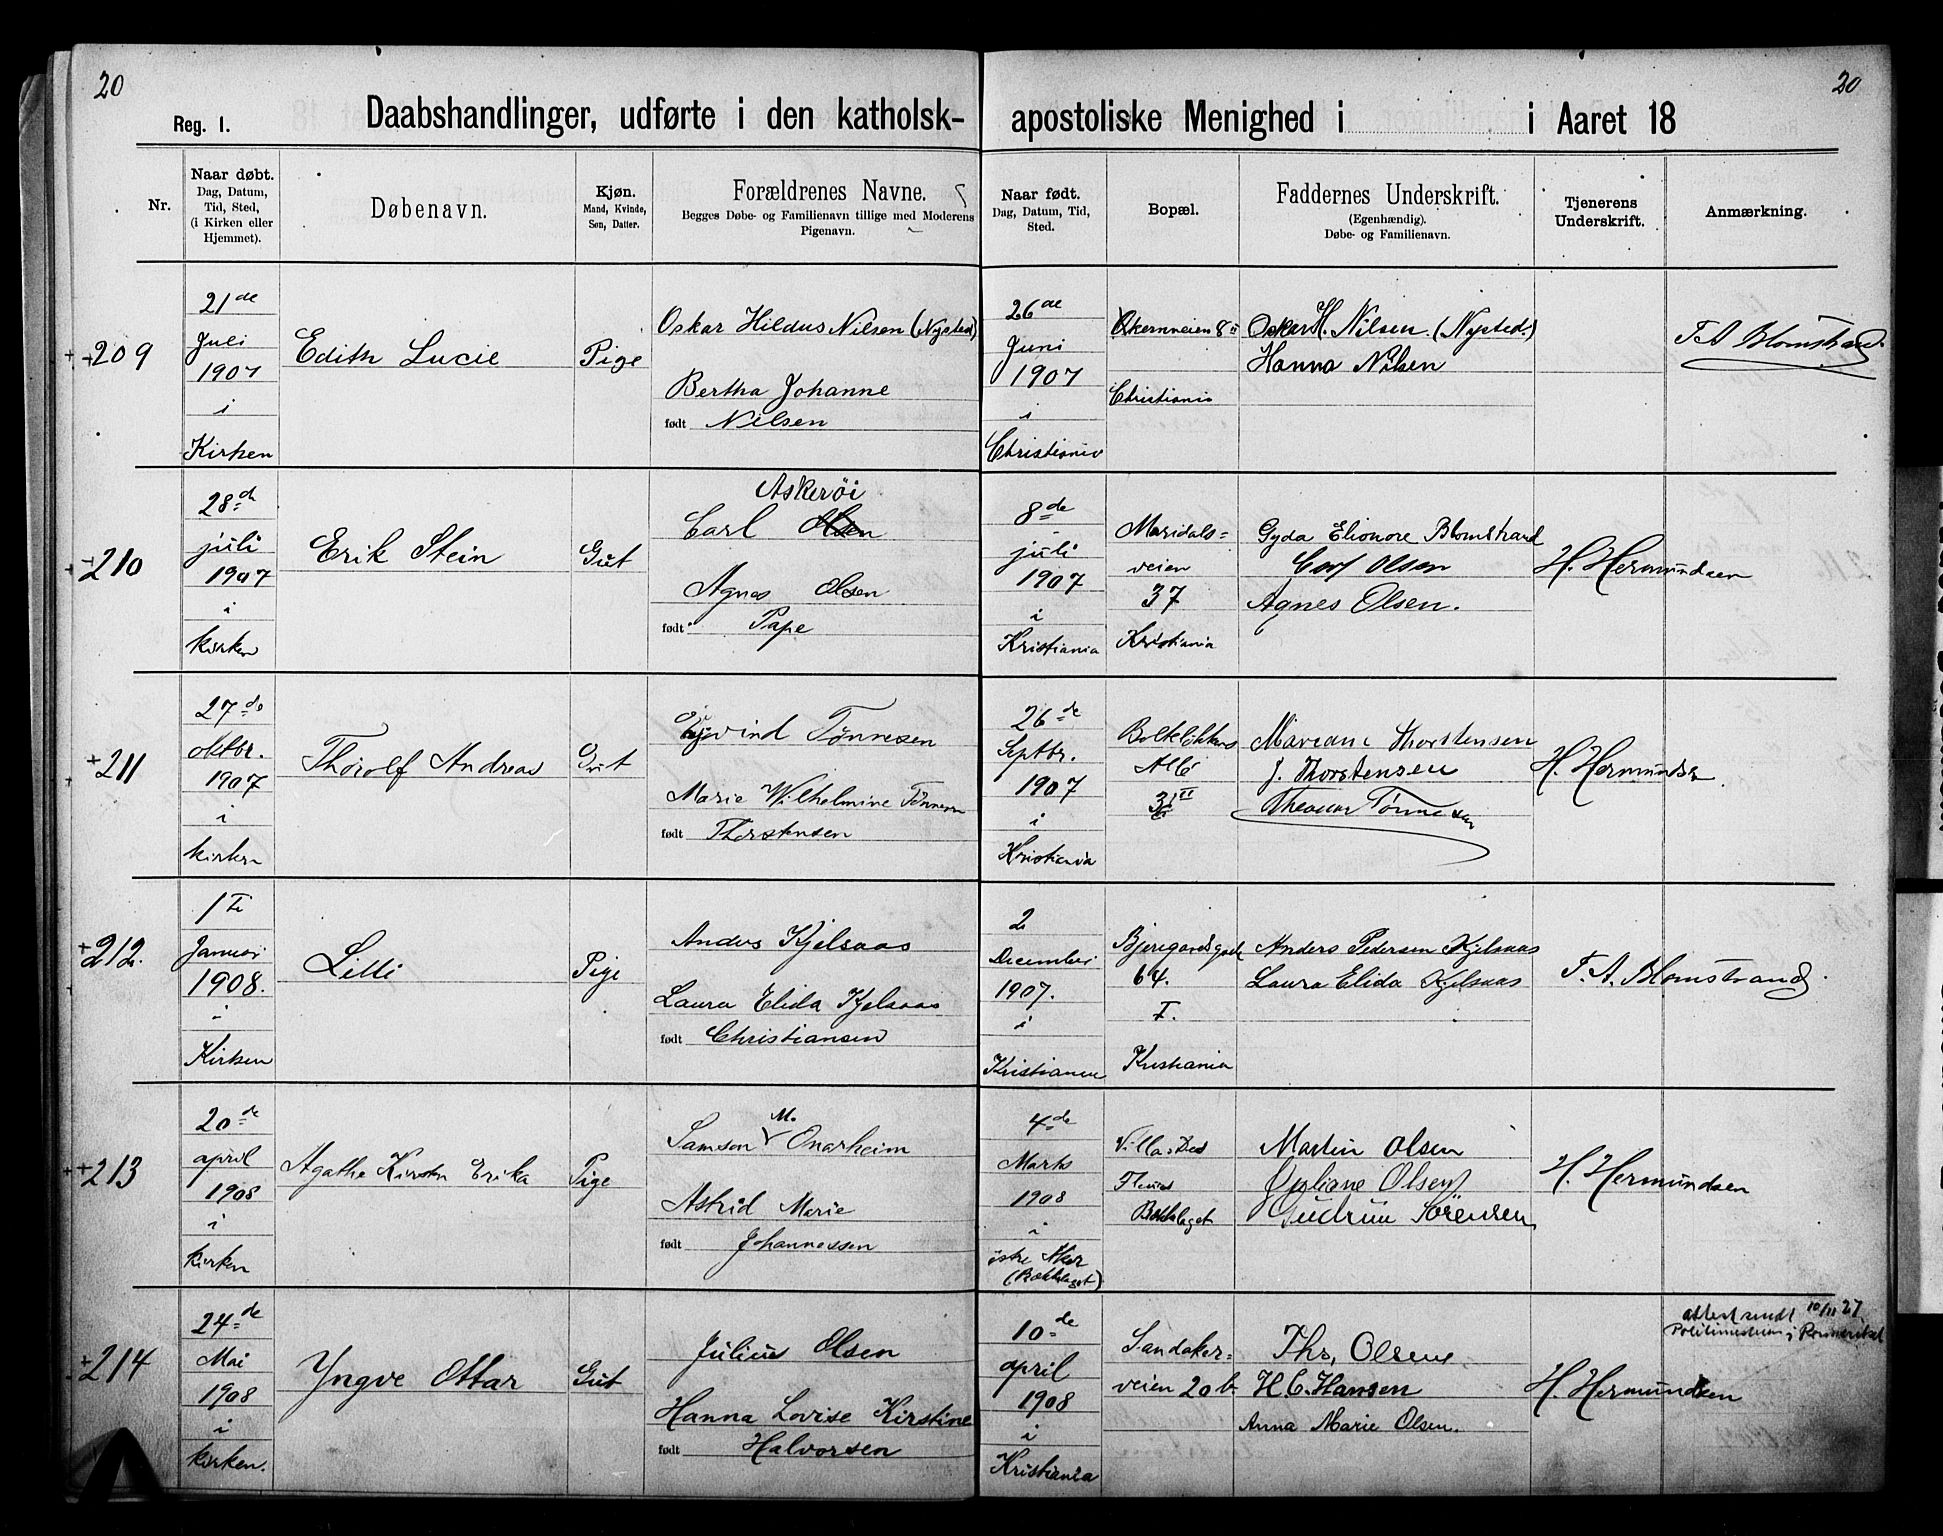 20
20
Reg. 1.
Daabshandlinger, udførte i den katholsk-apostoliske Menighed i i Aaret 18
Nr.
Naar døbt.
Dag, Datum,
Tid, Sted,
(i Kirken eller
Hjemmet).
Døbenavn.
Kjøn.
Mand, Kvinde,
Søn, Datter.
Forældrenes Navne.
Begges Døbe- og Familienavn tillige med Moderens
Pigenavn.
Naar født.
Dag, Datum, Tid,
Sted.
Bopæl.
Faddernes Underskrift.
(Egenhændig).
Døbe- og Familienavn.
Tjenerens
Underskrift.
Anmærkning.
209
21de
Juli
1907
i
Kirken
Edith Lucie
Pige
Oskar Hildus Nilsen (Nysted)
Bertha Johanne
født Nilsen
26de
Juni
1907
i
Christiania
Økernveien 8 II
Christiania
Oskar H. Nilsen. (Nysted)
Hanna Nilsen
T A Blomstrand.
210
28de
juli
1907
i
kirken
Erik Stein
Gut
Askerøi
Carl Olsen
Agnes Olsen
født Pape
8de
juli
1907
i
Kristiania
Maridals=
veien
37
Kristiania
Gyda Elionore Blomstrand
Carl Olsen
Agnes Olsen.
H. Hermundsen
211
27de
oktbr.
1907
i
kirken
Thorolf Andreas
Gut
Øivind Tønnesen
Marie Wilhelmine Tønnesen
født Thorstensen
26de
Septbr.
1907
i
Kristiania
Allé
Thorstensen
J. Thorstensen
Tønnesen
H. Hermundsen
212.
1ste
Januar
1908.
i
Kirken
Lilli
Pige
Anders Kjelsaas
Laura Elida Kjelsaas
født Christiansen
2
December
1907.
i
Kristiania
Bjeregaardsgade
64.
I.
Kristiania
Anders Pedersen Kjelsaas
Laura Elida Kjelsaas
T. A. Blomstrand.
213
20de
april
1908
i
kirken
Agathe Kirsten Erika
Pige
Samson M. Onarheim
Astrid Marie
født Johannessen
4de
Marts
1908
i
østre Aker
(Bækkelaget)
Villa
Martin Olsen
Olsen
Gudrun Sørensen
H. Hermundsen
214
24de
Mai
1908
i
kirken.
Yngve Ottar
Gut
Julius Olsen
Hanna Lovise Kirstine
født Halvorsen
10de
april
1908
i
Kristiania
Sandaker=
veien 20 b.
Ths. Olsen
H. C. Hansen
Anna Marie Olsen.
H. Hermundsen
attest sendt 10/11 27
Politimesteren i Romerike